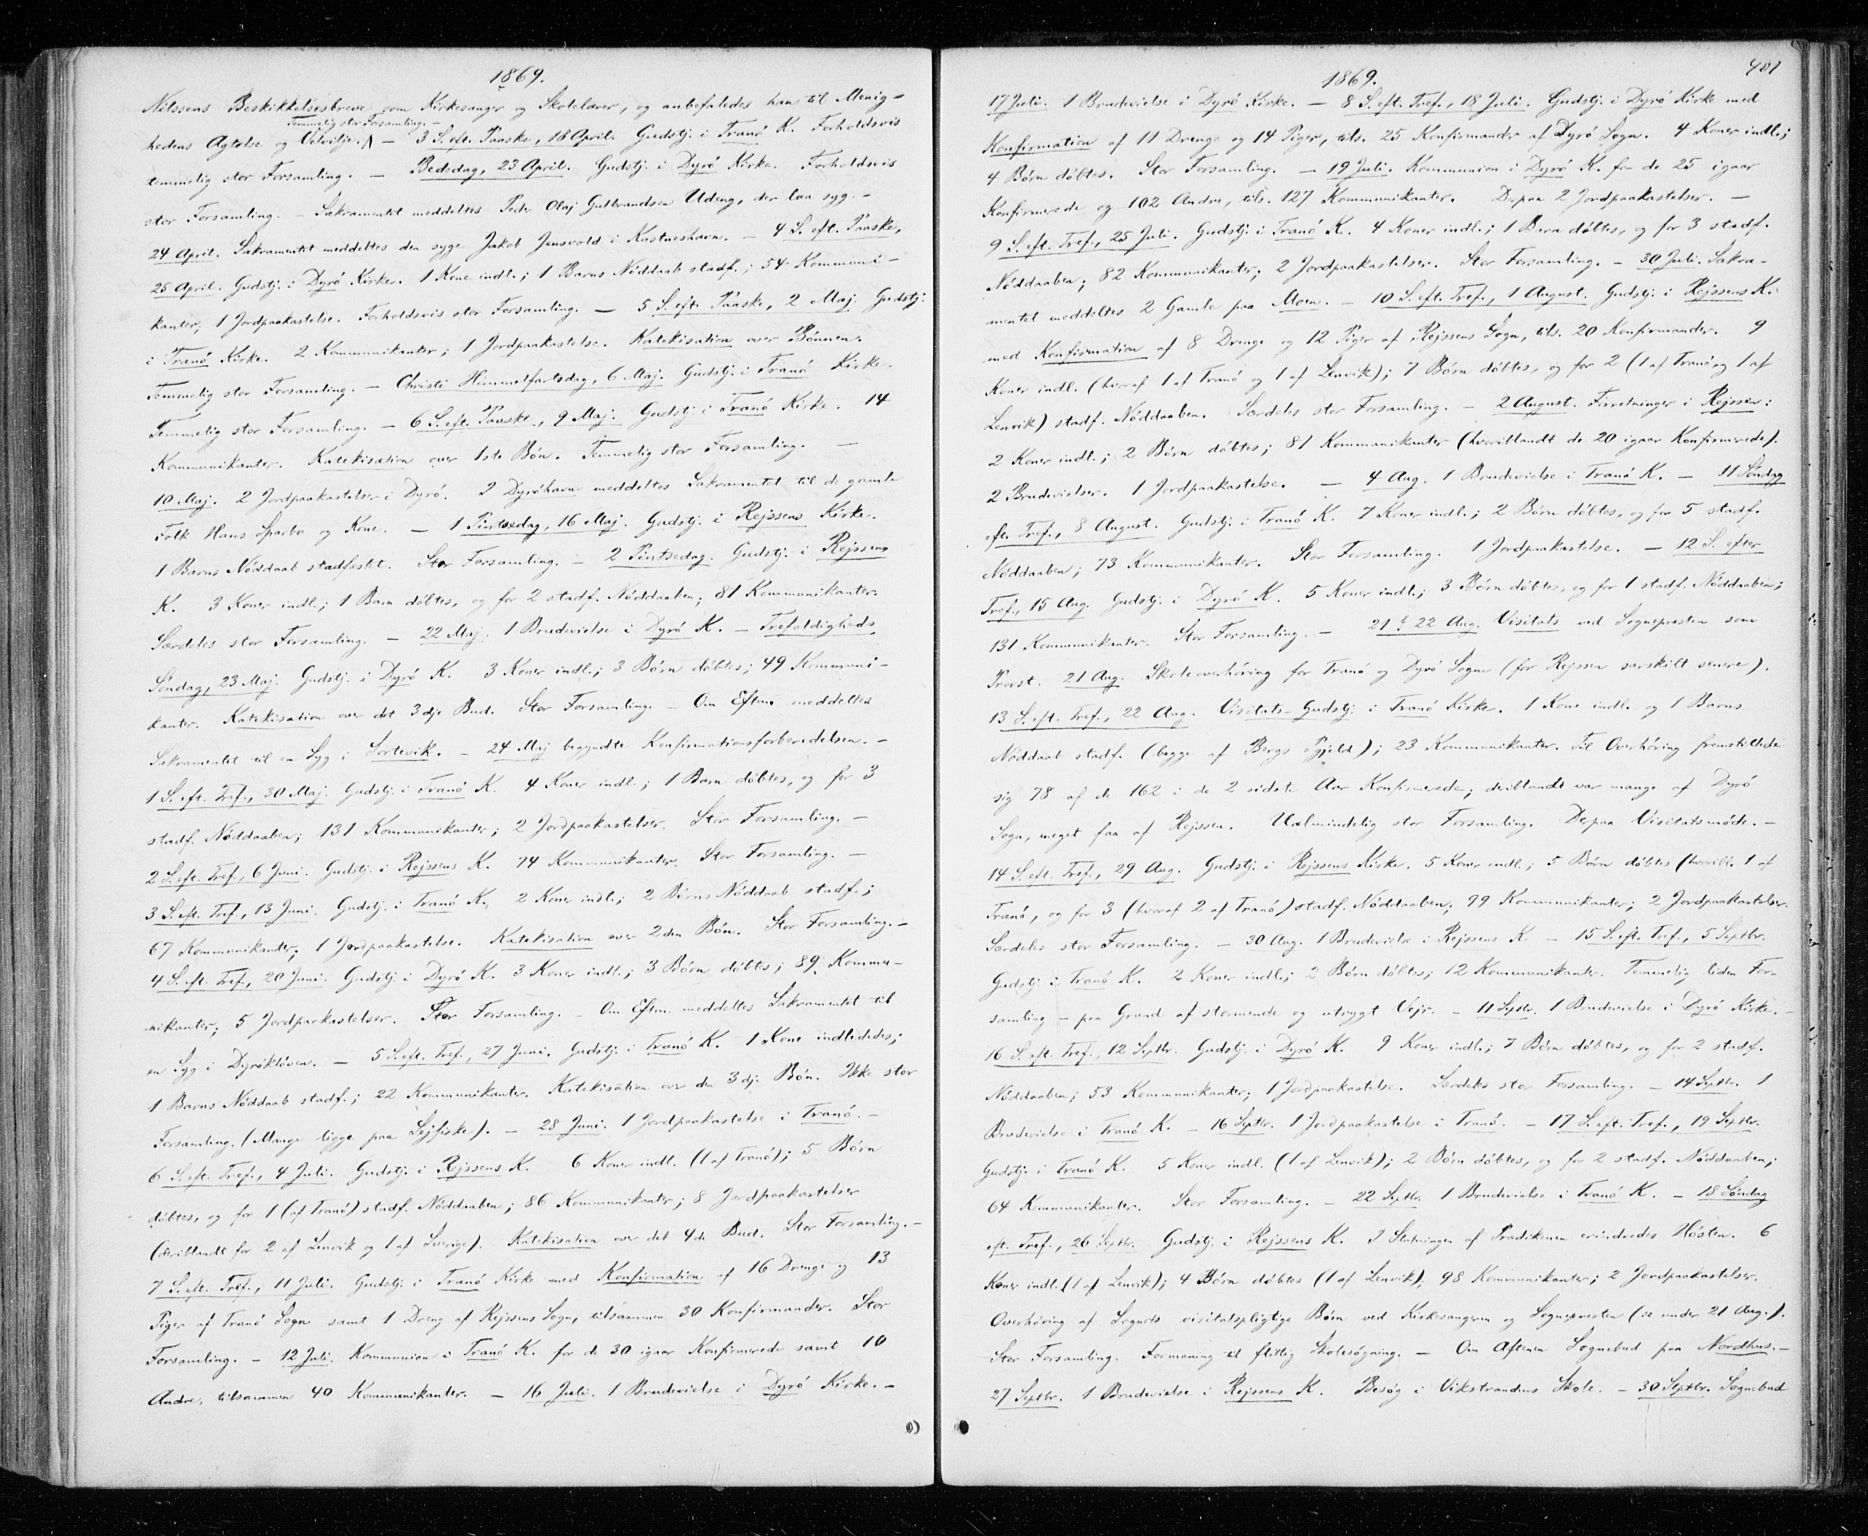 1869.
Nilssens Beskikkelsesbreve som Kirkesanger og Skolelærer, og anbefaledes han til Menig-
Temmelig stor Forsamling. –
hedens Agtelse og Velvilje. – 3 S. eft. Paaske, 18 April. Gudstj. i Tranö K. Forholdsvis
temmelig stor Forsamling. – Bededag, 23 April. Gudstj. i Dyrö Kirke. Forholdsvis
stor Forsamling. – Sakramentet meddeltes Peder Olaj Gulbrandsen Udeng, der laa syg. –
24 April. Sakramentet meddeltes den syge Jakob Jensvold i Kastneshavn. – 4 S. eft. Paaske,
25 April. Gudstj. i Dyrö Kirke. 1 Kone indl.; 1 Barns Nöddaab stadf.; 54 Kommuni-
kanter, 1 Jordpaakastelse. Forholdsvis stor Forsamling. – 5 S. eft. Paaske, 2 Maj. Gudstj.
i Tranö Kirke. 2 Kommunikanter; 1 Jordpaakastelse. Katekisation over Bönnen.
Temmelig stor Forsamling. – Christi Himmelfartsdag, 6 Maj. Gudstj. i Tranö Kirke.
Temmelig stor Forsamling. – 6 S. eft. Paaske, 9 Maj. Gudstj. i Tranö Kirke. 14
Kommunikanter. Katekisation over 1ste Bön. Temmelig stor Forsamling. –
10 Maj. 2 Jordpaakastelser i Dyrö. I Dyröhavn meddeltes Sakramentet til de gamle
Folk Hans Sparbo og Kone. – 1 Pintsedag, 16 Maj. Gudstj. i Rejssens Kirke.
1 Barns Nöddaab stadfæstet. Stor Forsamling. – 2 Pintsedag. Gudstj. i Rejssens
K. 3 Koner indl.; 1 Barn döbtes, og for 2 stadf. Nöddaaben; 81 Kommunikanter.
Særdeles stor Forsamling. – 22 Maj. 1 Brudevielse i Dyrö K. – Trefoldigheds
Söndag, 23 Maj. Gudstj. i Dyrö K. 3 Koner indl.; 3 Börn döbtes; 49 Kommuni-
kanter. Katekisation over det 3dje Bud. Stor Forsamling. – Om Eftm. meddeltes
Sakramentet til en Syg i Sortevik. – 24 Maj begyndte Konfirmationsforberedelsen. –
1 S. eft. Tref., 30 Maj. Gudstj. i Tranö K. 4 Koner indl.; 1 Barn döbtes, og for 3
stadf. Nöddaaben; 131 Kommunikanter; 2 Jordpaakastelser. Stor Forsamling. –
2 S. eft. Tref., 6 Juni. Gudstj. i Rejssens K. 74 Kommunikanter. Stor Forsamling. –
3 S. eft. Tref., 13 Juni. Gudstj. i Tranö K. 2 Koner indl.; 2 Börns Nöddaab stadf.;
67 Kommunikanter; 1 Jordpaakastelse. Katekisation over 2den Bön. Stor Forsamling. –
4 S. eft. Tref., 20 Juni. Gudstj. i Dyrö K. 3 Koner indl.; 3 Börn döbtes; 89 Kommu-
nikanter; 5 Jordpaakastelser. Stor Forsamling. – Om Eftm. meddeltes Sakramentet til
en Syg i Dyröklöven. – 5 S. eft. Tref., 27 Juni. Gudstj. i Tranö K. 1 Kone indlededes;
1 Barns Nöddaab stadf.; 22 Kommunikanter. Katekisation over den 3dje Bön. Ikke stor
Forsamling. (Mange ligge paa Sejfiske). – 28 Juni. 1 Jordpaakastelse i Tranö. –
6 S. eft. Tref., 4 Juli. Gudstj. i Rejssens K. 6 Koner indl. (1 af Tranö); 5 Börn
döbtes, og for 1 (af Tranö) stadf. Nöddaaben; 86 Kommunikanter; 8 Jordpaakastelser
(deriblandt for 2 af Lenvik og 1 af Sverige). Katekisation over det 4de Bud. Stor Forsamling. –
7 S. eft. Tref., 11 Juli. Gudstj. i Tranö Kirke med Konfirmation af 16 Drenge og 13
Piger af Tranö Sogn samt 1 Dreng af Rejssens Sogn, tilsammen 30 Konfirmander. Stor
Forsamling. – 12 Juli. Kommunion i Tranö K. for de 30 igaar Konfirmerede samt 10
Andre, tilsammen 40 Kommunikanter. – 16 Juli. 1 Brudevielse i Dyrö Kirke. –
401
1869.
17 Juli. 1 Brudevielse i Dyrö Kirke. – 8 S. eft. Tref., 18 Juli. Gudstj. i Dyrö Kirke med
Konfirmation af 11 Drenge og 14 Piger, tils. 25 Konfirmander af Dyrö Sogn. 4 Koner indl.;
4 Börn döbtes. Stor Forsamling. – 19 Juli. Kommunion i Dyrö K. for de 25 igaar
Konfirmerede og 102 Andre, tils. 127 Kommunikanter. Derpaa 2 Jordpaakastelser. –
9 S. eft. Tref., 25 Juli. Gudstj. i Tranö K. 4 Koner indl.; 1 Barn döbtes, og for 3 stadf.
Nöddaaben; 82 Kommunikanter; 2 Jordpaakastelser. Stor Forsamling. – 30 Juli. Sakra-
mentet meddeltes 2 Gamle paa Moen. – 10 S. eft. Tref., 1 August. Gudstj. i Rejssens K.
med Konfirmation af 8 Drenge og 12 Piger af Rejssens Sogn, tils. 20 Konfirmander. 9
Koner indl. (hvoraf 1 af Tranö og 1 af Lenvik); 7 Börn döbtes, og for 2 (1 af Tranö og 1 af
Lenvik) stadf. Nöddaaben. Særdeles stor Forsamling. – 2 August. Forretninger i Rejssen:
2 Koner indl.; 2 Börn döbtes; 81 Kommunikanter (hvoriblandt de 20 igaar Konfirmerede).
2 Brudevielser. 1 Jordpaakastelse. – 4 Aug. 1 Brudevielse i Tranö K. – 11 Söndag
eft. Tref., 8 August. Gudstj. i Tranö K. 7 Koner indl.; 2 Börn döbtes, og for 5 stadf.
Nöddaaben; 73 Kommunikanter. Stor Forsamling. 1 Jordpaakastelse. – 12 S. efter
Tref., 15 Aug. Gudstj. i Dyrö K. 5 Koner indl.; 3 Börn döbtes, og for 1 stadf. Nöddaaben;
131 Kommunikanter. Stor Forsamling. – 21 & 22 Aug. Visitats ved Sognepresten som
Provst. 21 Aug. Skoleoverhöring for Tranö og Dyrö Sogne (for Rejssen særskilt senere).
13 S. eft. Tref., 22 Aug. Visitats-Gudstj. i Tranö Kirke. 1 Kone indl. og 1 Barns
Nöddaab stadf. (begge af Bergs Pgjeld); 23 Kommunikanter. Til Overhöring fremstillede
sig 78 af de 162 i de 2 sidste Aar Konfirmerede; deriblandt var mange af Dyrö
Sogn, meget faa af Rejssen. Ualmindelig stor Forsamling. Derpaa Visitatsmöde. –
14 S. eft. Tref., 29 Aug. Gudstj. i Rejssens Kirke. 5 Koner indl.; 5 Börn döbtes (hvoribl. 1 af
Tranö, og for 3 (hvoraf 2 af Tranö) stadf. Nöddaaben; 99 Kommunikanter; 2 Jordpaakastelser.
Særdeles stor Forsamling. – 30 Aug. 1 Brudevielse i Rejssens K. – 15 S. eft. Tref., 5 Septbr.
Gudstj. i Tranö K. 2 Koner indl.; 2 Börn döbtes; 12 Kommunikanter. Temmelig liden For-
samling – paa Grund af stormende og utrygt Vejr. – 11 Septbr. 1 Brudevielse i Dyrö Kirke. –
16 S. eft. Tref., 12 Septbr. Gudstj. i Dyrö K. 9 Koner indl.; 7 Börn döbtes, og for 2 stadf.
Nöddaaben; 53 Kommunikanter; 1 Jordpaakastelse. Særdeles stor Forsamling. – 14 Septbr. 1
Brudevielse i Tranö K. – 16 Septbr. 1 Jordpaakastelse i Tranö. – 17 S. eft. Tref., 19 Septbr.
Gudstj. i Tranö K. 5 Koner indl. (1 af Lenvik); 2 Börn döbtes, og for 2 stadf. Nöddaaben;
64 Kommunikanter. Stor Forsamling. – 22 Septbr. 1 Brudevielse i Tranö K. – 18 Söndag
eft. Tref., 26 Septbr. Gudstj. i Rejssens K. I Slutningen af Prædikenen erindredes Hösten. 6
Koner indl. (1 af Lenvik); 4 Börn döbtes (1 af Lenvik); 98 Kommunikanter; 2 Jordpaakastelser.
Overhöring af Sognets visitatspligtige Börn ved Kirkesangeren og Sognepresten (se under 21 Aug.).
Stor Forsamling. Formaning til flittig Skolesögning. – Om Aftenen Sognebud paa Nordhus. –
27 Septbr. 1 Brudevielse i Rejssens K. Besög i Vikstrandens Skole. – 30 Septbr. Sognebud